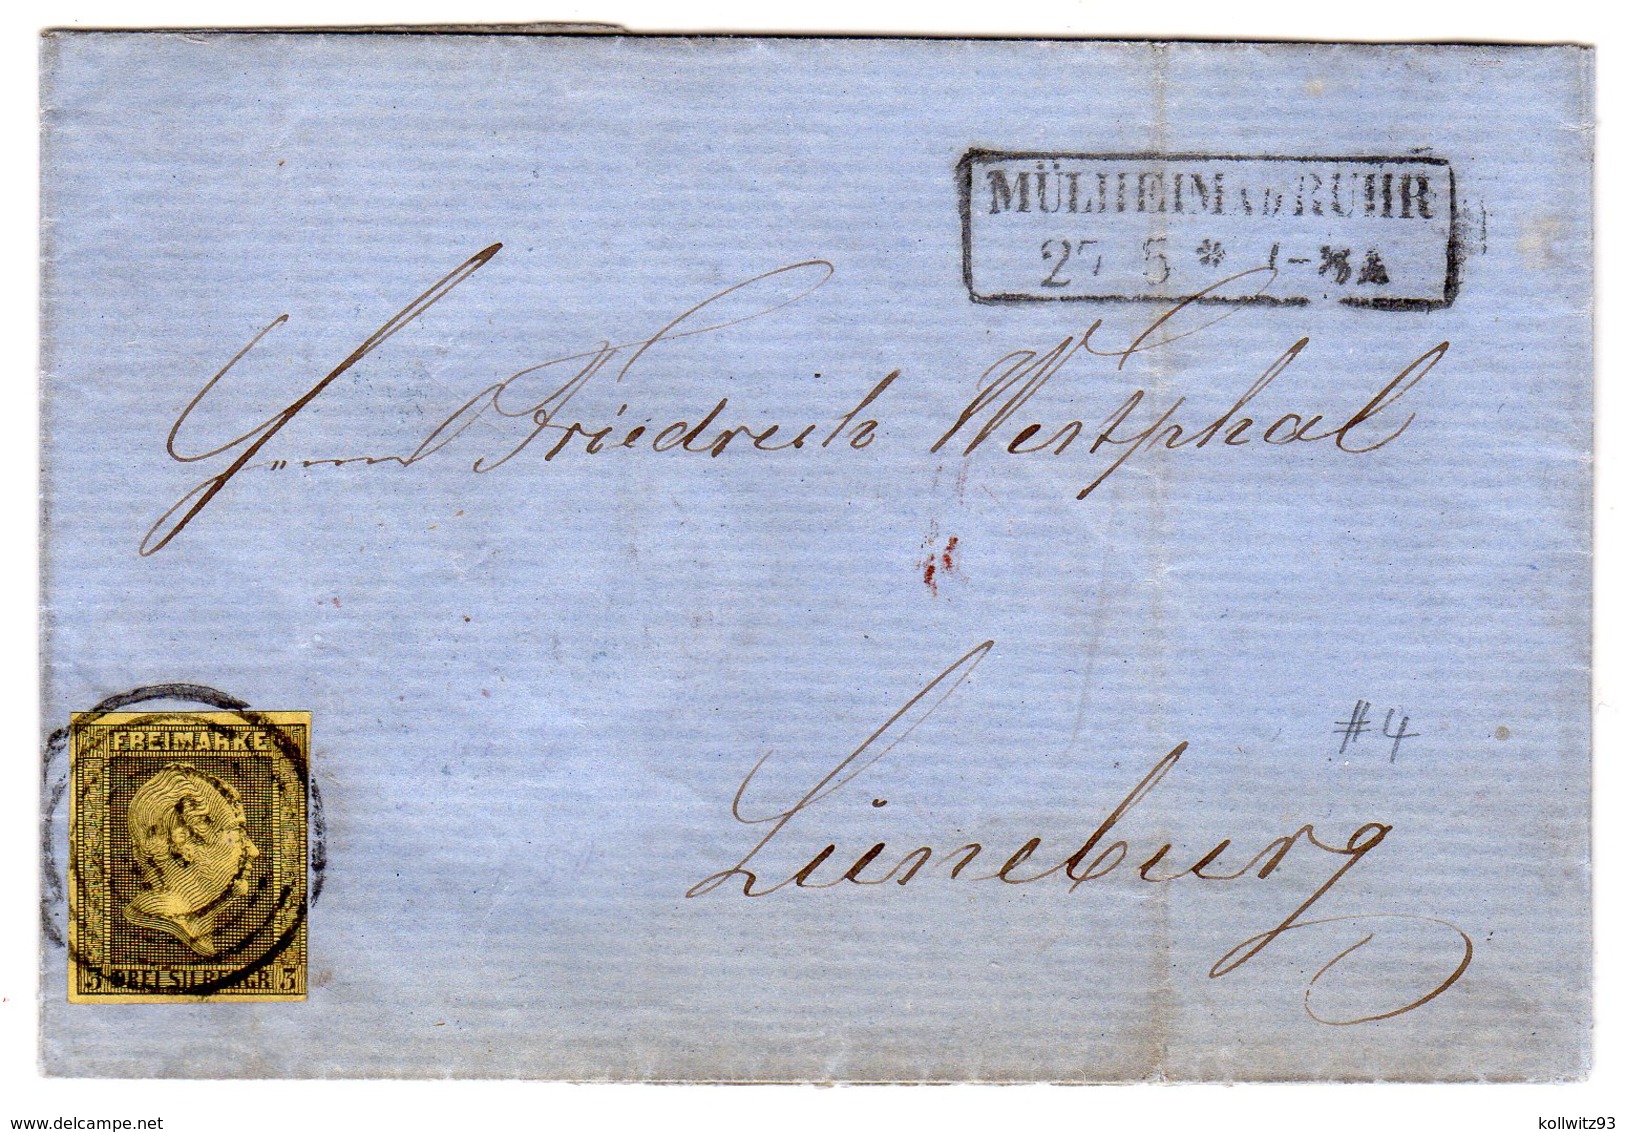 MÜLHEIM a/d RUHR
27 5 *
Herrn Friedrich Westphal
Lüneburg
#4
FREIMARKE
3 DREI SILBERGR. 3
delcampe.net
kollwitz93